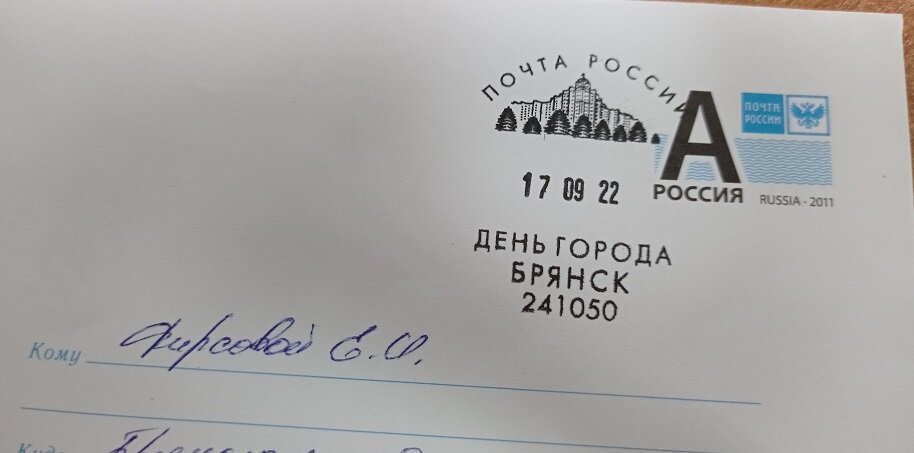 ПОЧТА РОССИИ
А
ПОЧТА
РОССИИ
17 09 22
РОССИЯ
RUSSIA - 2011
ДЕНЬ ГОРОДА
БРЯНСК
241050
Кому Фирсовой Е.И.
Куда